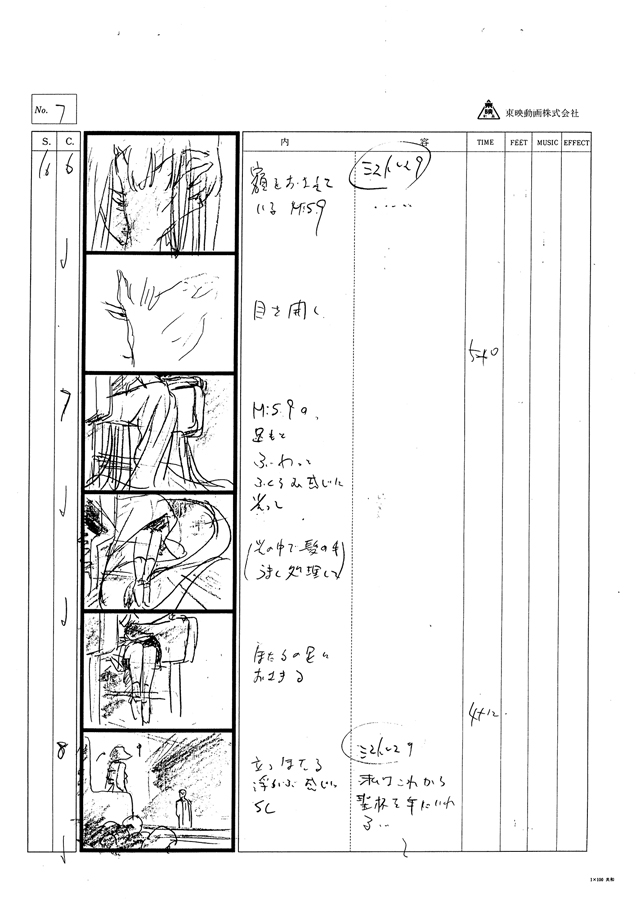 No. 7
東映
東映動画株式会社
S. C. 内 容 TIME FEET MUSIC EFFECT
16 6
額をおさえて
いる M:S.9
ミストレス9
・・・・・
目を開く
5+0
7
M:S.9の、
足もと
ふわっ
ふくらみ感じに
光って
(光の中で髪の毛
うまく処理して)
ほたるの足に
おさまる
4+12
8
立つほたる
浮かぶ感じに
SL
ミストレス9
私はこれから
聖杯を手にいれ
る…
1×100 共和